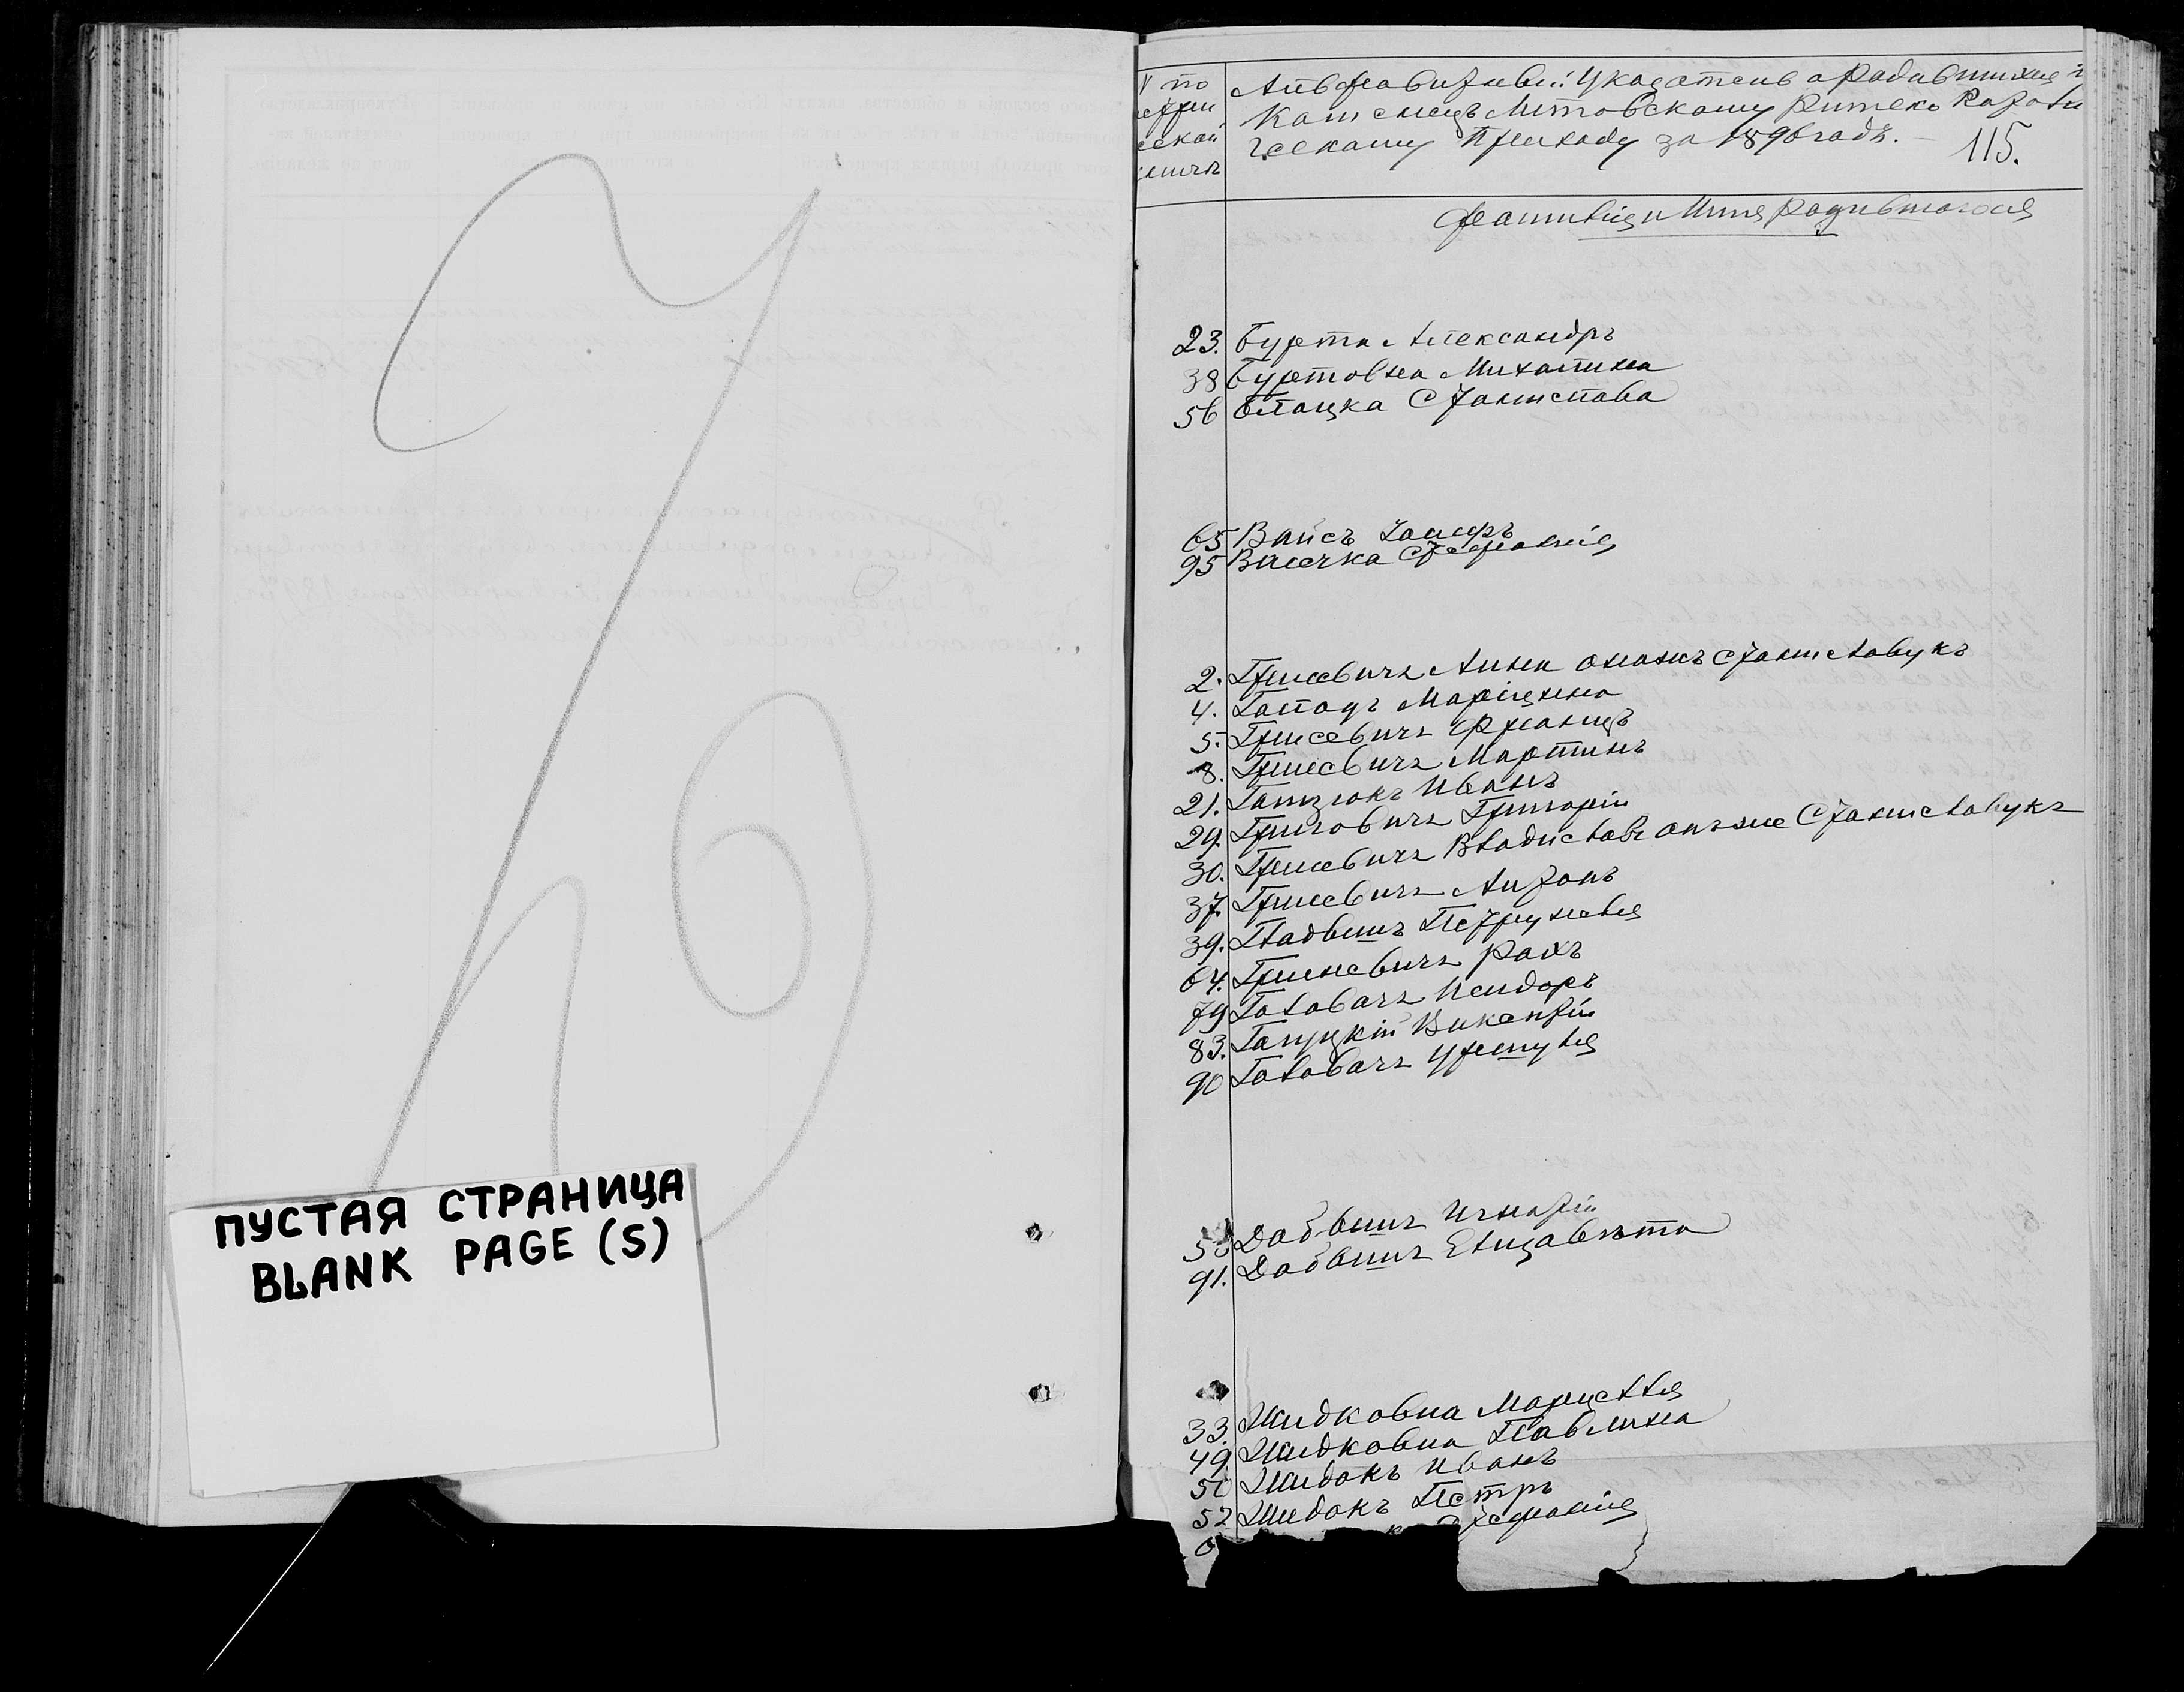 ПУСТАЯ СТРАНИЦА
BLANK PAGE (S)
№ по
ческой
Алфавитный Указатель о родившихся
Каменецъ Литовскому Римско Катол
ческому Приходу за 1896 годъ.
115.
Фамилія и Имя Родившагося
23. Бурта Александръ
38 Буртовна Михалина
56 Блоцка Станислава
65 Вайсъ
95 Стефанія
2. Грисевичъ Анна онажъ Станиславукъ
4. Марціянна
5. Грисевичъ Францъ
8. Грисевичъ Мартинъ
21. Гацзюкъ Иванъ
29. Григовичъ Григорій
30. Грисевичъ Владиславъ онъ же Станиславукъ
37. Грисевичъ Антонъ
39. Гладышъ Петрунеля
64. Гриневичъ Рохъ
79 Головачъ Исидоръ
83. Викентій
90 Головачъ Уршуля
Добышъ Игнатій
91. Добышъ Елизавета
33. Жидковна Марцелля
49 Жидковна Павлина
Жидокъ Иванъ
52 Жидокъ Петръ
Стефанія